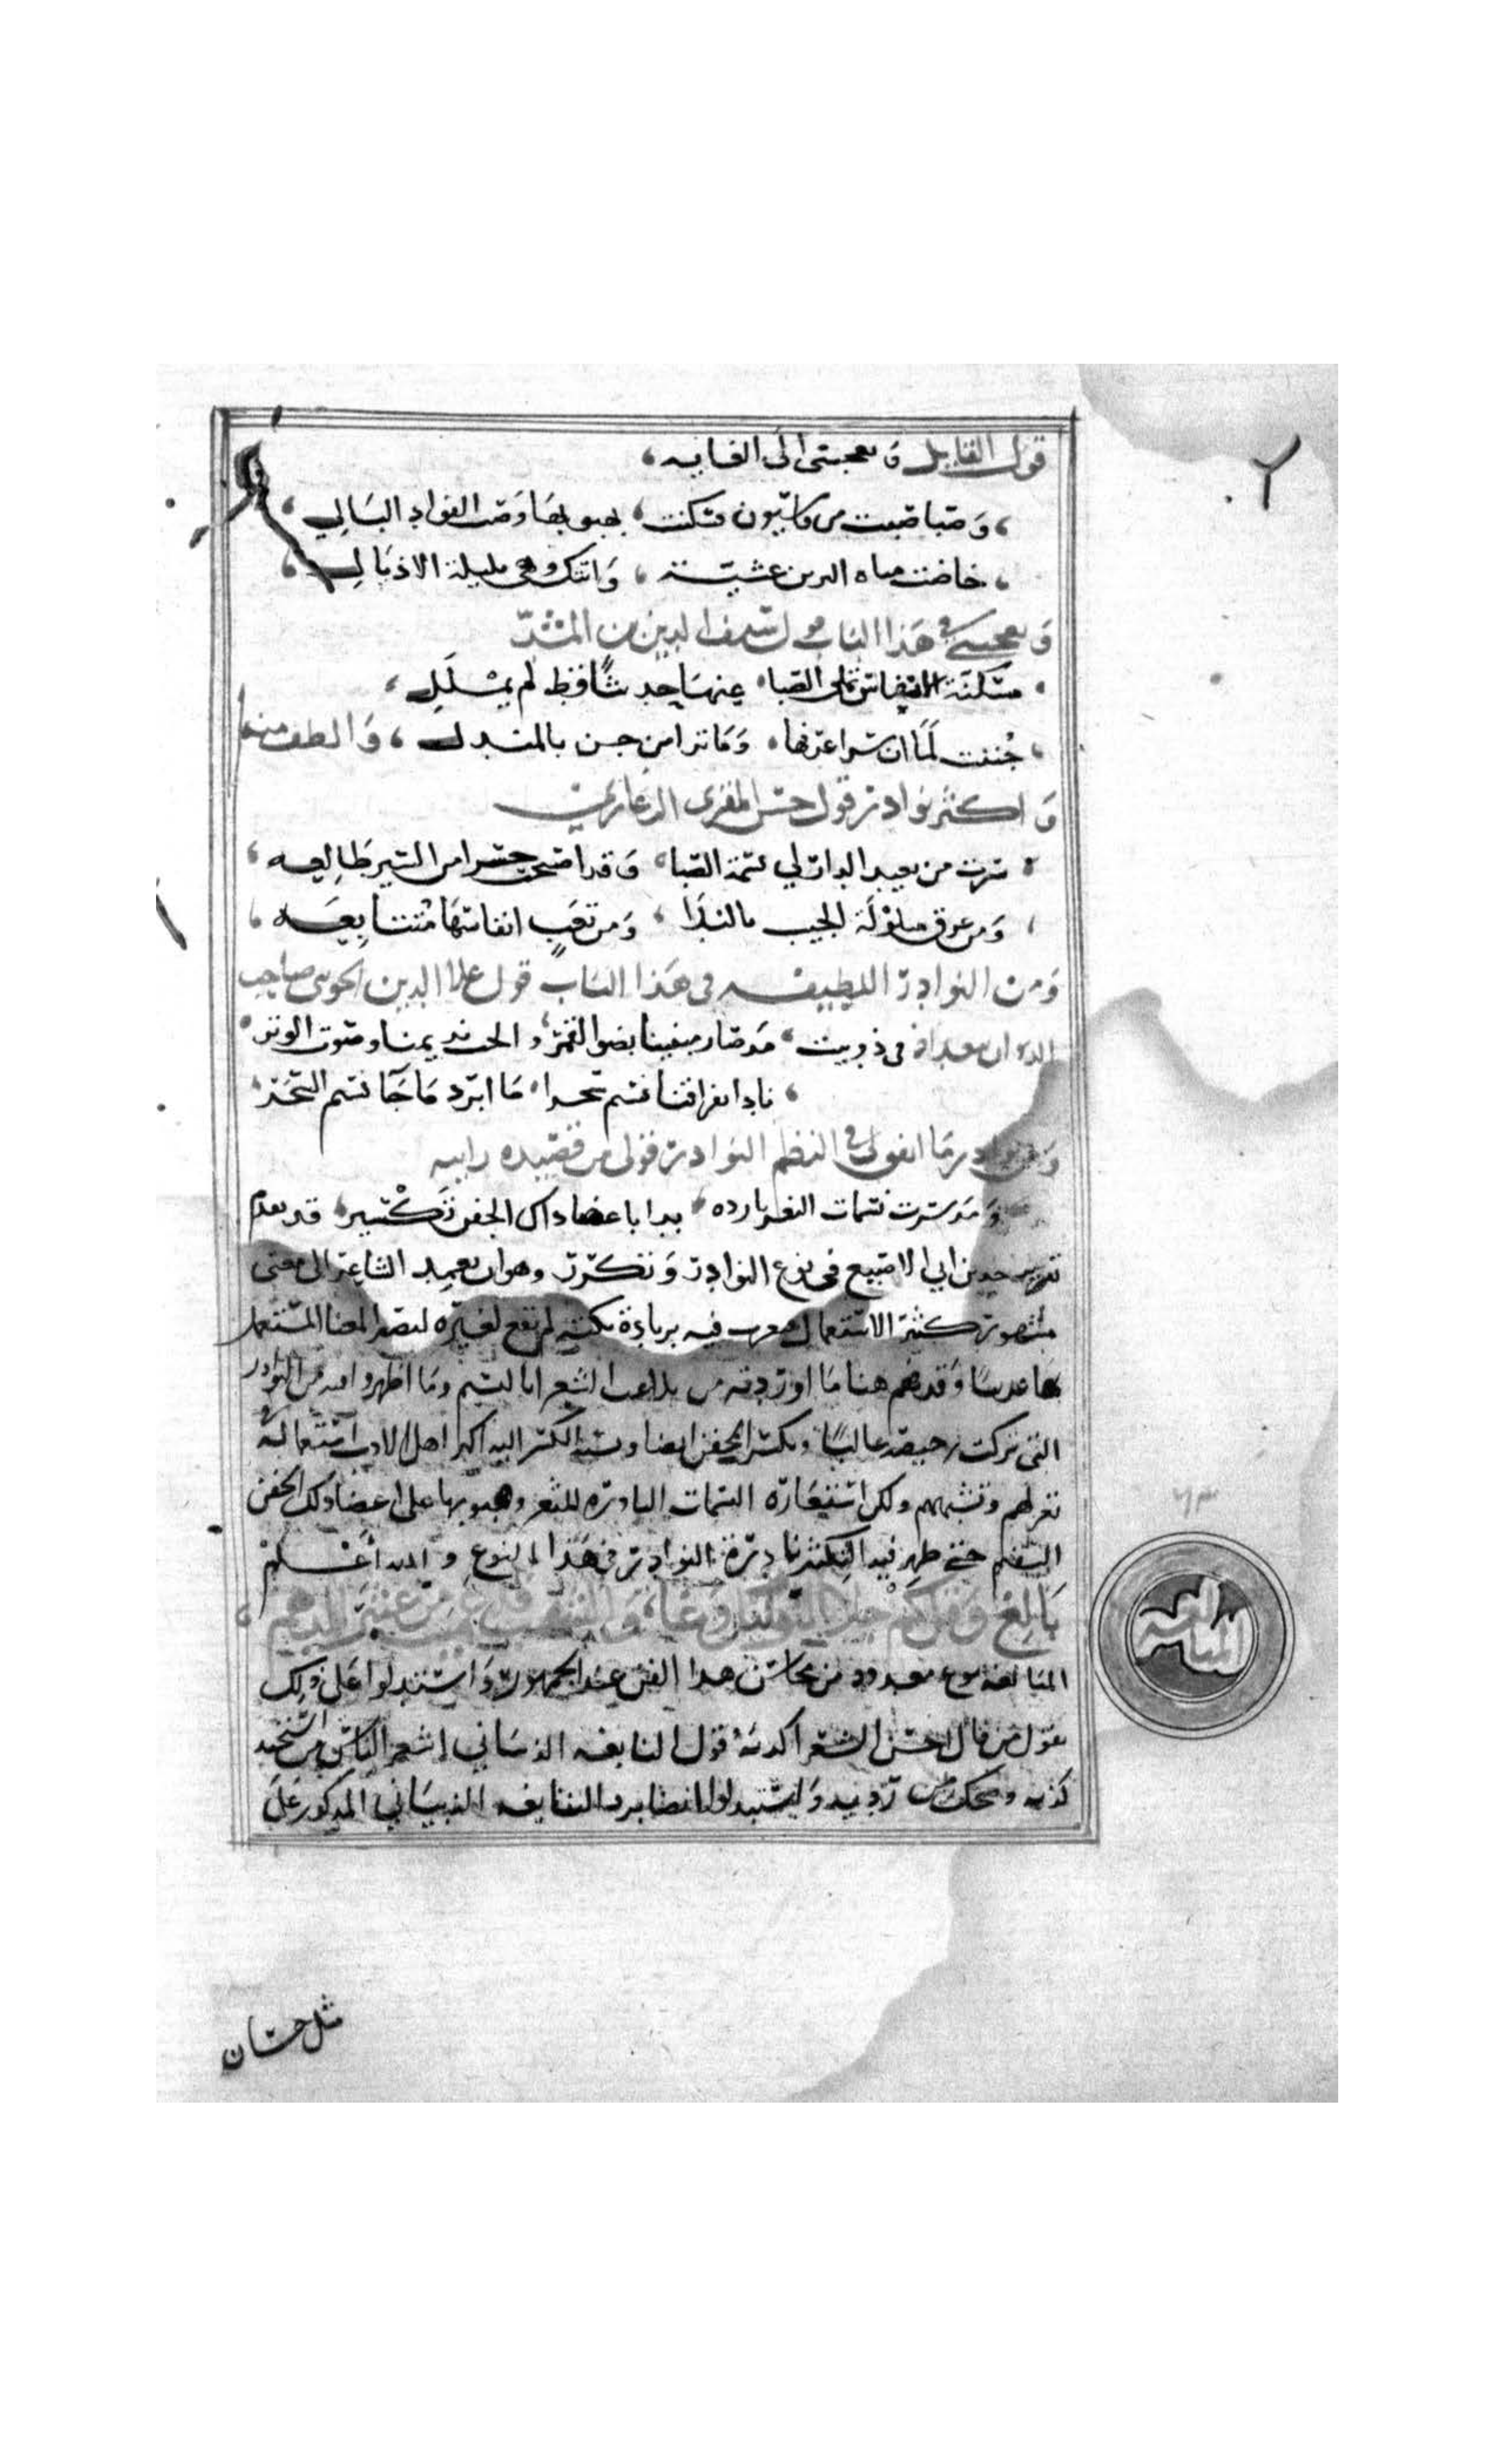 قول القايل ويعجبني الى الغايه
وصبا صبت من قاسيون فسكنت بهبوبها وصب الفواد البالي
خاضت مياه النهرين عشية واتتك وهي بليلة الاذيال
ويعجبني في هذا الباب قول شرف الدين
مسكية الانفاس تملي الصبا عنها حديثا قط لم يملل
جننت لما ان سرا عرفها وما نرا من جن بالمندل والطف منه
واكثر نوادر قول حسن المغزى الدغاري
سرت من بعيد الدار لي نسمة الصبا وقد اصبحت حسرا من السير ظالعه
ومن عرق مبلولة الجيب بالندا ومن تعب انفاسها متتابعه
ومن النوادر اللطيفه في هذا الباب قول علا الدين الجويني صاحب
الديوان ببغداد في ذوبيت مذ صار مبيتنا بضو القمر والحب نديمنا وصوت الوتر
نادا بفراقنا نسيم سحرا ما ابرد ما جا نسيم السحر
ومن نوادر ما اتفق لي في النظم النوادر قولي من قصيده راييه
ومذ سرت نسمات الثغر بارده بدا باعضا ذاك الجفن تكسير قد تقدم
تقرير حد بن ابي الاصبع في نوع النوادر وتكرر وهو ان يعمد الشاعر الى معنى
مشهور كثير الاستعمال فيغرب فيه بزيادة نكته لم تقع لغيره ليصير المعنا المستعمل
بها غريبا وقد فهم هنا ما اوردته من بلاغت الشعرا بالنسيم وما اظهروا فيه من النوادر
التي تركت رخيصه غاليا وتكسر الجفن ايضا ونسبة الكسر اليه اكثر اهل الادب استعماله في
تغزلهم وتشبيههم ولكن استعارة النسمات البارده للثغر وهبوبها على اعضا ذلك الجفن
السقيم حتى ظهر فيه التكسر نادرة النوادر في هذا النوع والله اعلم
بالغ وقل كم جلا بالنور ليل وغا والشهب قد رمدت من عثير الدهم
المبالغة نوع معدود من محاسن هذا الفن عند الجمهور واستدلوا على ذلك
بقول من قال احسن الشعر اكذبه وقول النابغه الذبياني اشعر الناس من استجيد
كذبه وضحك من رديه واستدلوا ايضا برد النابغه الذبياني المذكور على
المبالغه
مثل حسان